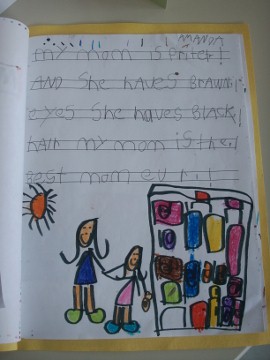 AMANDA
my mom is pritty!
AND She haves BRAWN
eyes She haves BLACK
hair my mom is the
best mom ev r!!